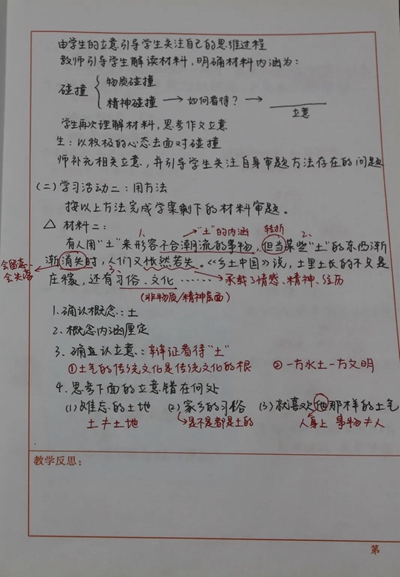 由学生的立意引导学生关注自己的思维过程
教师引导学生解读材料,明确材料内涵为:
碰撞 { 物质碰撞
精神碰撞 → 如何看待? → 立意
学生再次理解材料,思考作文立意
生:以积极的心态去面对碰撞
师补充相关立意,并引导学生关注自身审题方法存在的问题
(二)学习活动二:用方法
按以上方法完成学案剩下的材料审题。
△ 材料二:
1. "土"的内涵 转折 2.
有人用"土"来形容不合潮流的事物,但当某些"土"的东西渐
渐消失时,人们又怅然若失。《乡土中国》说,土里土长的不只是
会失落
庄稼,还有习俗、文化…… → 承载了情感、精神、经历
(非物质/精神层面)
1. 确认概念:土
2. 概念内涵厘定
3. 确立认立意:辩证看待"土"
①土气的传统文化是传统文化的根 ②一方水土一方文明
4. 思考下面的立意错在何处
(1)难忘的土地 (2)家乡的习俗 (3)就喜欢他那样的土气
土≠土地 是不是都是土的 人身上 事物≠人
教学反思:
第